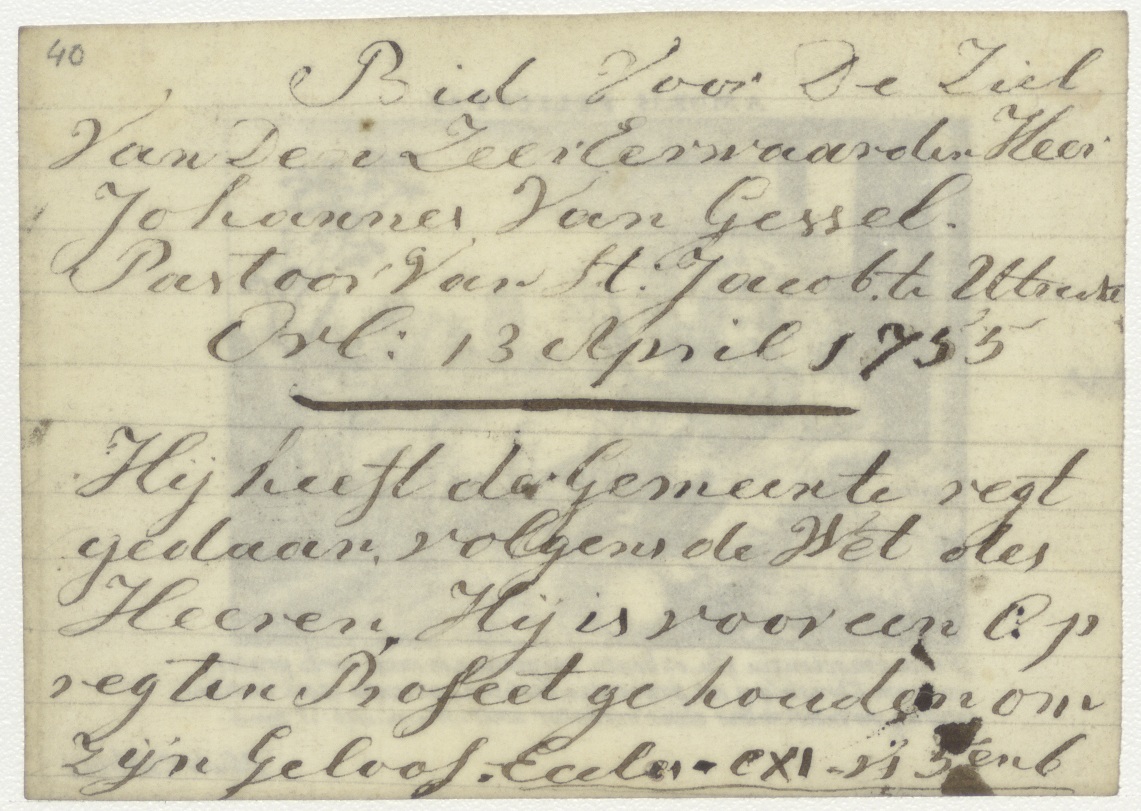 40
Bid Voor De Ziel
Van Den Zeer Eerwaarden Heer
Johannes Van Gessel.
Pastoor Van St. Jacob. te Utrecht
Ovl: 13 April 1755
Hij heeft de Gemeente regt
gedaan. volgens de Wet des
Heeren, Hij is voor een Op
regten Profeet gehouden om
zijn Geloof. Eccles. CXI 5 en 6